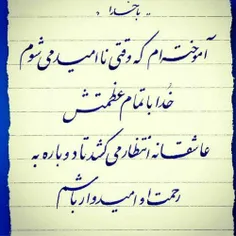 با خدا
آموخته‌ام که وقتی ناامید می شوم
خدا با تمام عظمتش
عاشقانه انتظار می کشد تا دوباره به
رحمت او امیدوار باشم